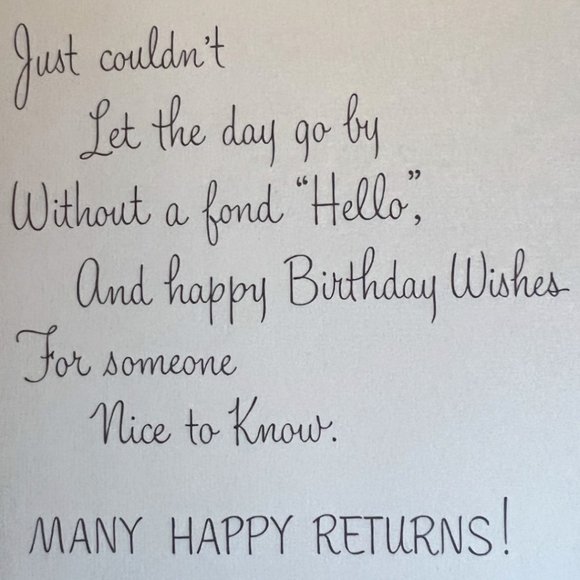 Just couldn't
Let the day go by
Without a fond “Hello”,
And happy Birthday Wishes
For someone
Nice to Know.
MANY HAPPY RETURNS!